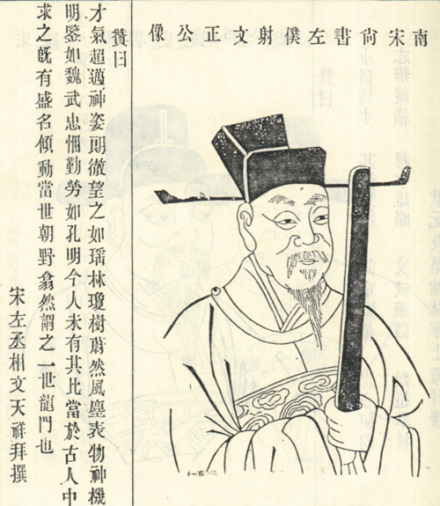 南宋尚書左僕射文正公像
贊曰
才氣超邁神姿朗徹望之如瑤林瓊樹蔚然風塵表物神機
明鑒如魏武忠悃勤勞如孔明今人未有其比當於古人中
求之旣有盛名傾動當世朝野翕然謂之一世龍門也
宋左丞相文天祥拜撰